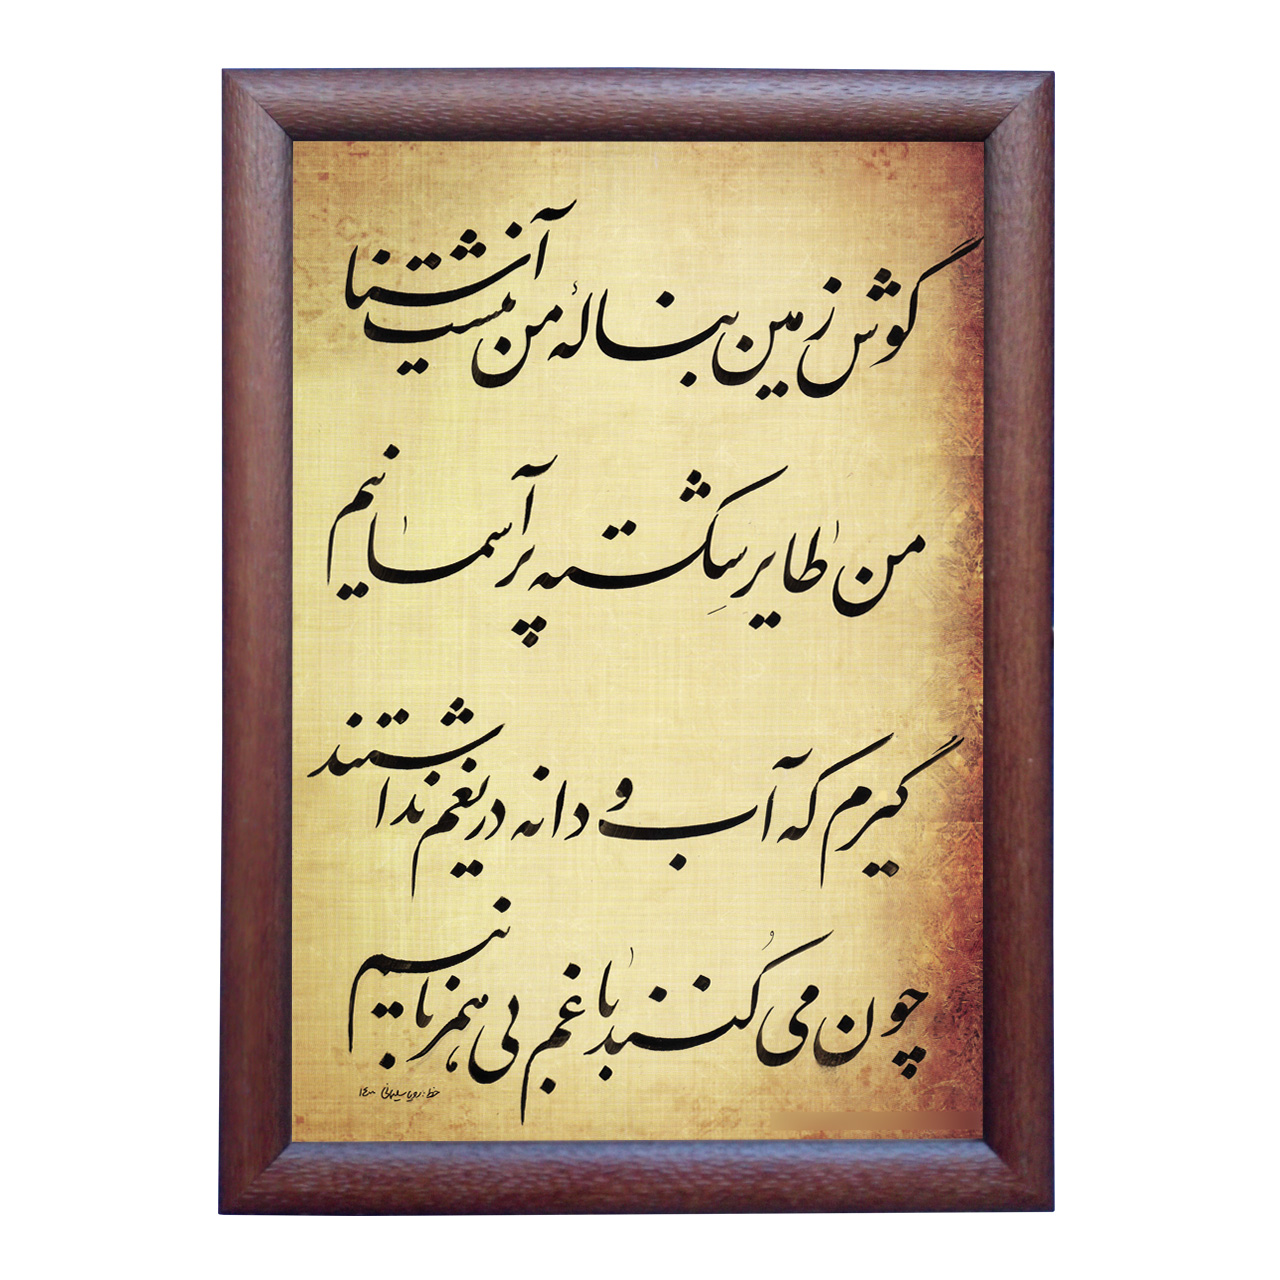 گوش زمین بنالهٔ من نیست آشنا
من طایر شکسته پر آسمانیم
گیرم که آب و دانه دریغم نداشتند
چون می کُنند با غم بی همزبانیم
خط: رویا سلیمانی ۱۴۰۰